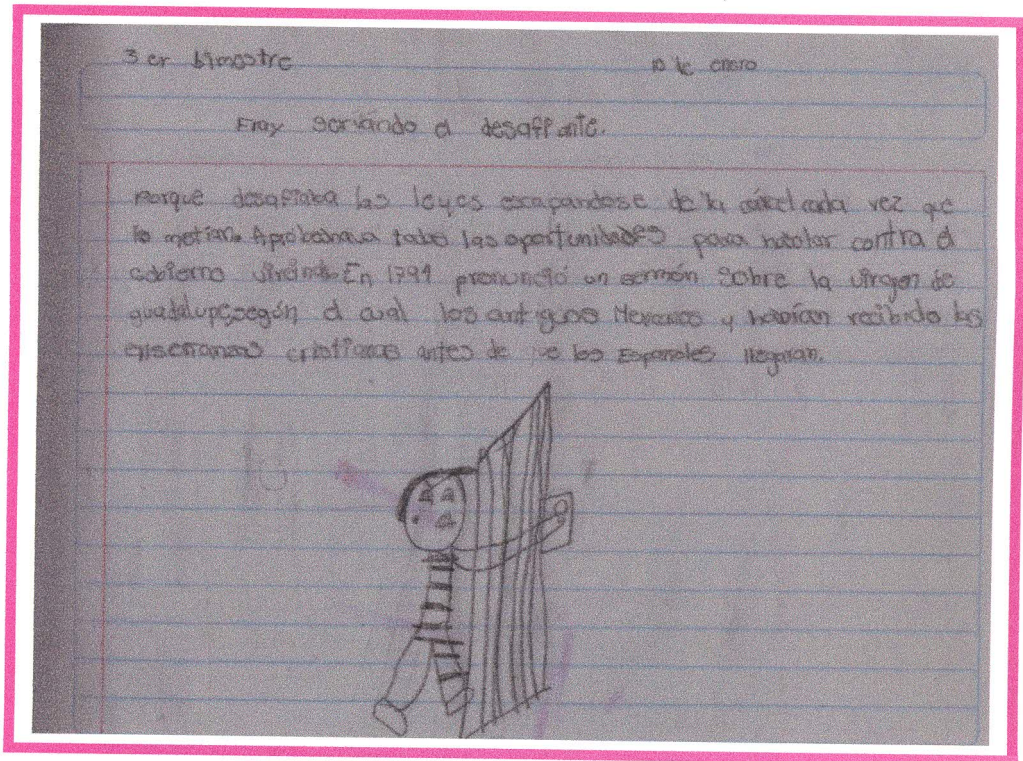 3 er bimestre
10 de enero
Fray servando el desafiante.
Porque desafiaba las leyes escapandose de la cárcel cada vez que
lo metian. Aprobehava todas las oportunidades para hablar contra el
gobierno virinal. En 1794 pronunció un sermón sobre la virgen de
guadalupe, según el cual los antiguos Mexicanos y habían recibido las
enseñanzas cristianas antes de que los Españoles llegaran.